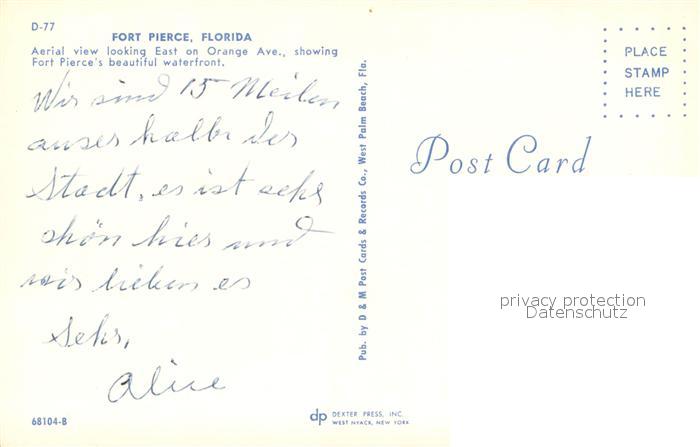 D-77
FORT PIERCE, FLORIDA
Aerial view looking East on Orange Ave., showing
Fort Pierce's beautiful waterfront.
Wir sind 15 Meilen
auserhalb der
Stadt, es ist sehr
schön hier und
wir lieben es
sehr,
Alice
68104-B
Pub. by D & M Post Cards & Records Co., West Palm Beach, Fla.
dp DEXTER PRESS, INC.
WEST NYACK, NEW YORK
PLACE
STAMP
HERE
Post Card
privacy protection
Datenschutz